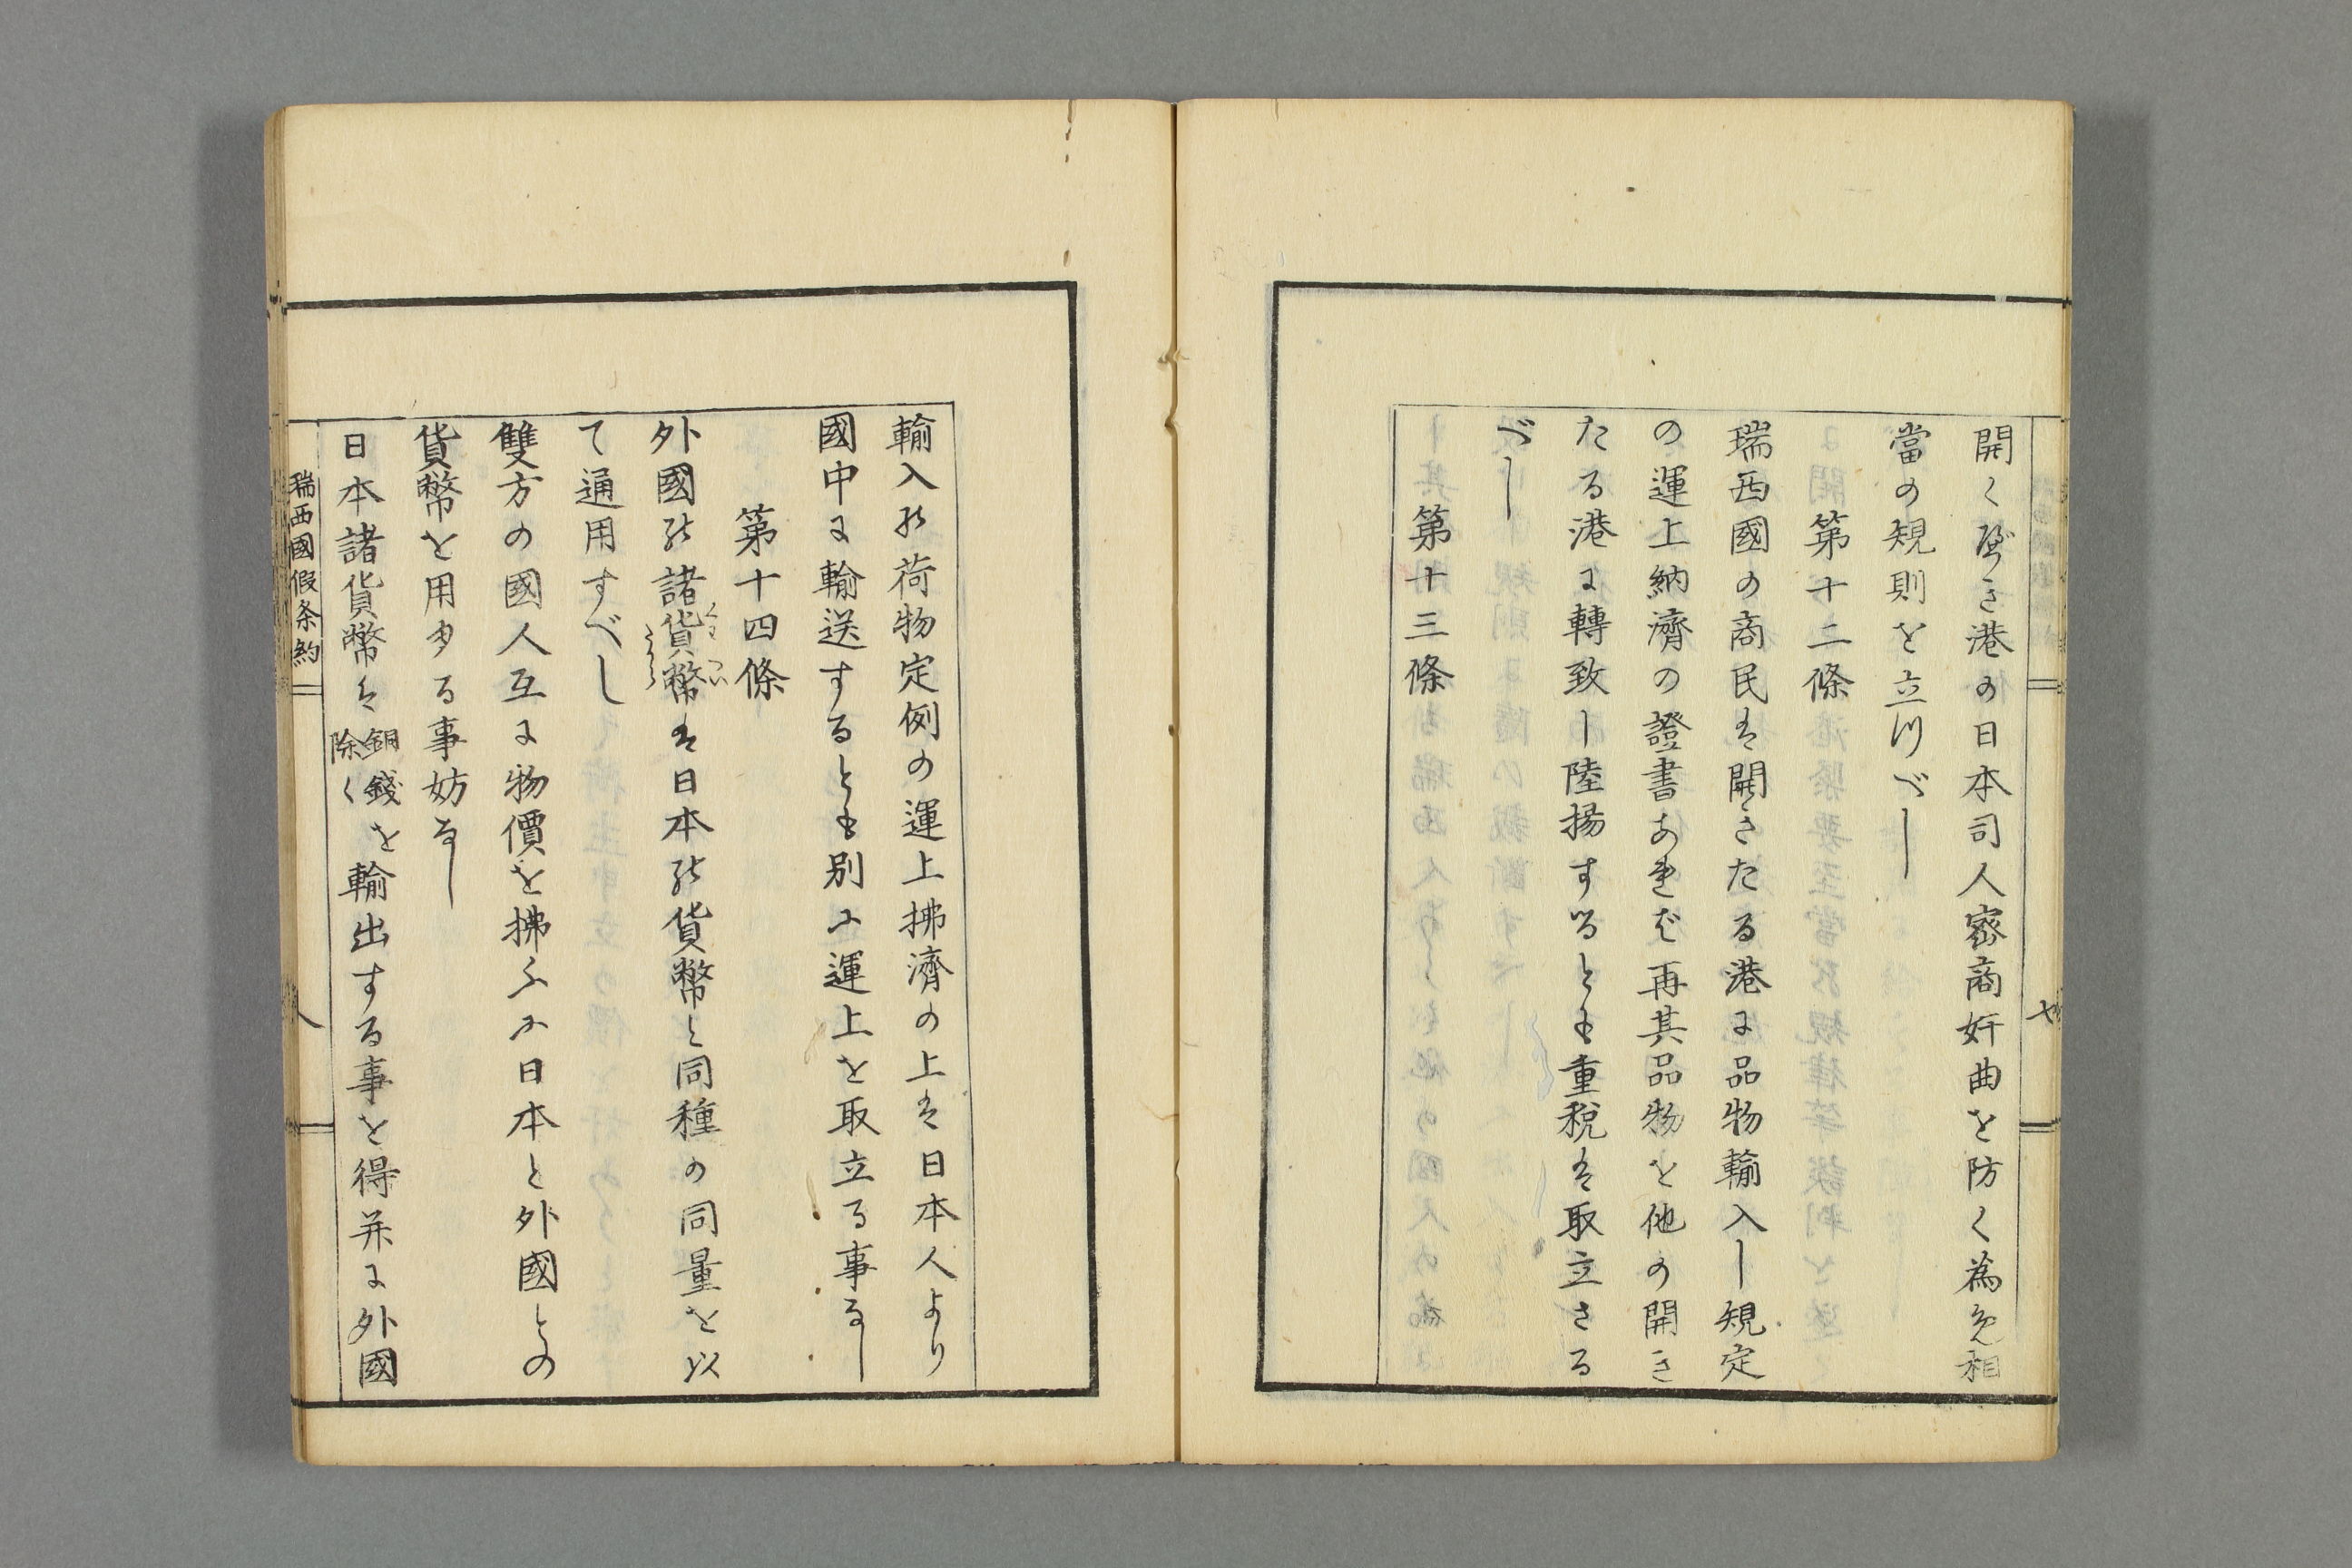 開くべき港の日本司人密商奸曲を防く為免相
當の規則を立つべし
第十二條
瑞西國の商民は開きたる港に品物輸入し規定
の運上納濟の證書あれば再其品物を他の開き
たる港に轉致し陸揚するとも重税は取立さる
べし
第十三條
輸入の荷物定例の運上拂濟の上は日本人より
國中に輸送するとも別に運上を取立る事なし
第十四條
外國の諸貨幣は日本の貨幣と同種の同量を以
て通用すべし
雙方の國人互に物價を拂ふに日本と外國との
貨幣を用ゆる事妨なし
日本諸貨幣は銅錢を除く輸出する事を得并に外國
瑞西國假条約
八